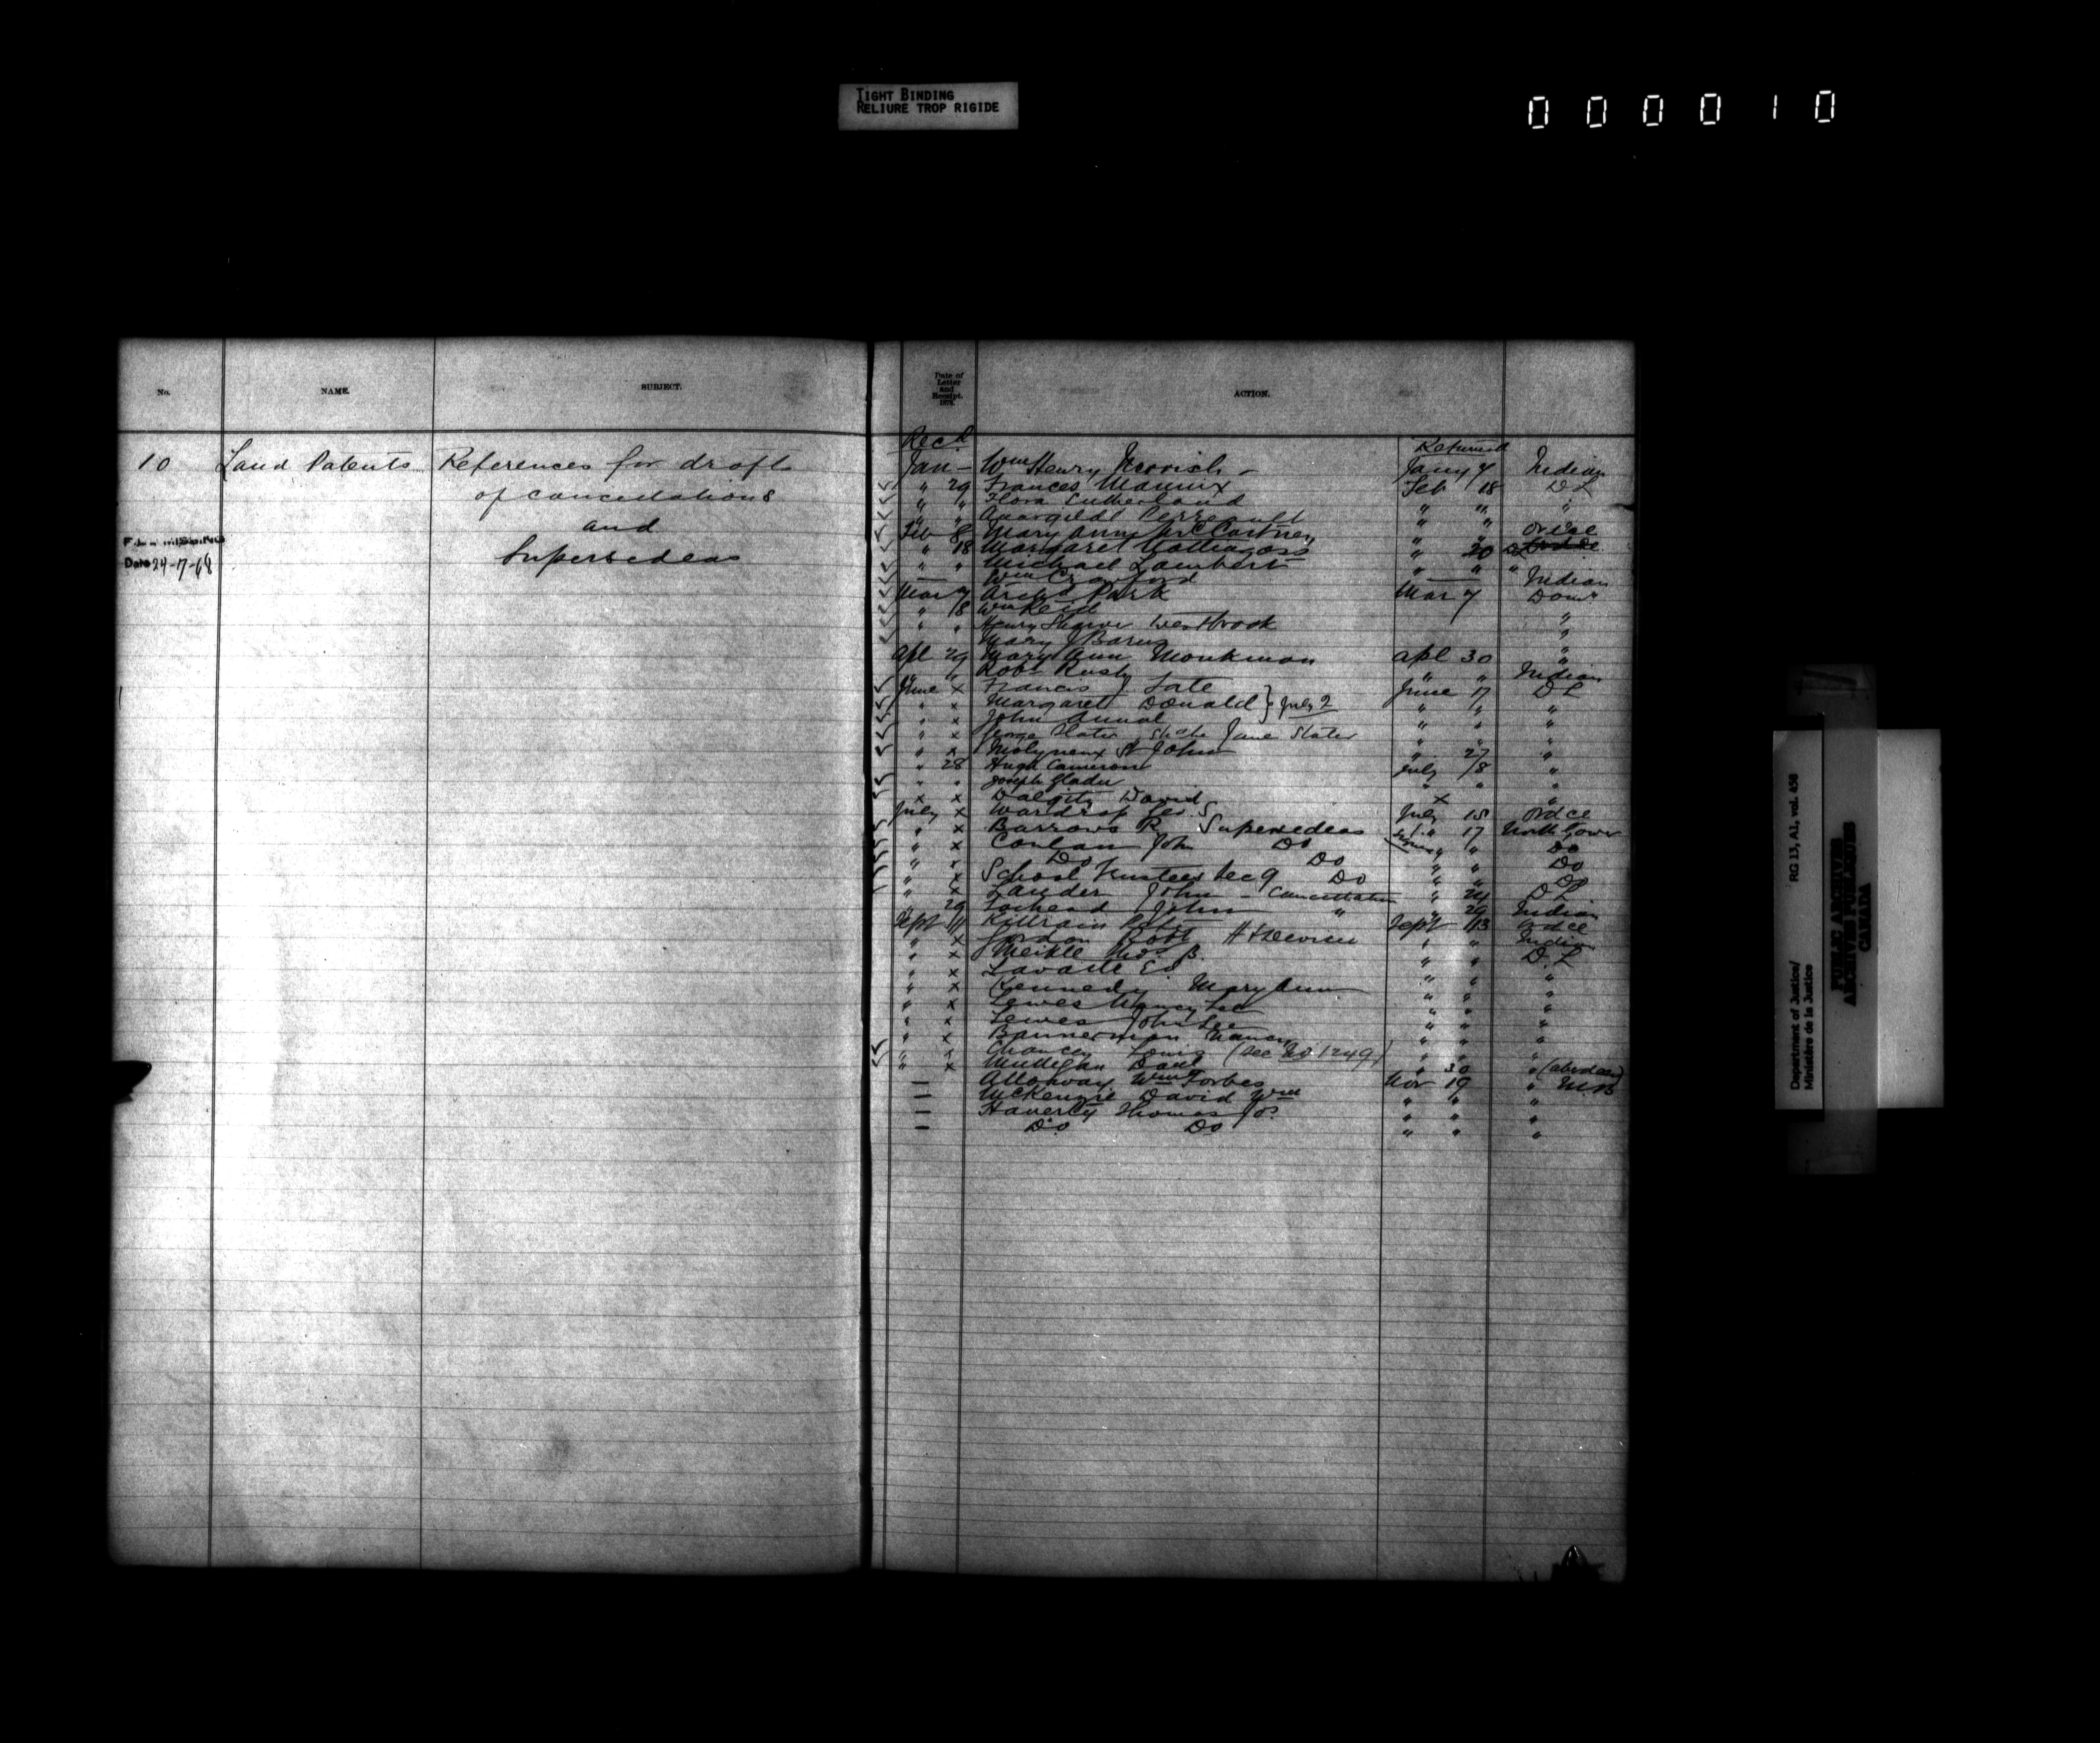 TIGHT BINDING
RELIURE TROP RIGIDE
000010
No.
NAME.
SUBJECT.
Date of
Letter
and
Receipt.
187
ACTION.
10 Land Patents References for draft
of cancellations
and
Supersedeas
Date 24-7-68
Recd Returned
Jan — Wm Henry Jany 7 Indian
" 29 Frances Mannix Feb 18 D L
" " Flora Sutherland " " "
" " Perreault " "
Feb 8 Mary Ann McCartney " " Ordce
" 18 Margaret " 20
" " Michael Lambert " " "
— Wm Crawford — Indian
Mar 7 Archd Park Mar 7 Domn
" 18 Wm Reid
" " Henry Westbrook "
Mary J Barns "
Apl 29 Mary Ann Monkman Apl 30 "
" " Robt Rusk " " Indian
June x Francis J. Tate June 17 D L
" x Margaret Donald } July 2 " " "
" x John Annal " " "
" x George Slater Jane Slater " " "
" x Molyneux St John " 27 "
" 28 Hugh Cameron July 18 "
" " Joseph Gladu " " "
x x Dalgity David x "
July x Wardrop July 15 Ordce
" x Barrows R Supersedeas " 17 North Gower
" x Conlan John Do " " Do
" x Do Do " " Do
" x School Trustees Sec 9 Do " " Do
" x Lauder John - Cancellation " 24 D L
" 29 Lochead John " " 29 Indian
Sept 11 Killrain Peter Sept 13 Ordce
" x Gordon Robt " " Indian
" x Meikle Thos B. " " D. L
" x " " "
" x Kennedy Mary Ann " " "
" x Lewes Nancy Lee " " "
" x Lewes John Lee " " "
" x Bannerman Nancy " " "
" x Louis (See No. 1249) " " "
" x Mulligan Danl " 30 " (Aberdeen)
— Alloway Wm Forbes Nov 19 " M.B
— McKenzie David Wm " " "
— Haverty Thomas Jos. " " "
— Do Do " " "
Department of Justice/ RG 13, A1, vol. 458
Ministère de la Justice
PUBLIC ARCHIVES
ARCHIVES PUBLIQUES
CANADA